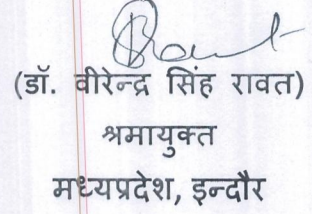 (डॉ. वीरेन्द्र सिंह रावत)
श्रमायुक्त
मध्यप्रदेश, इन्दौर